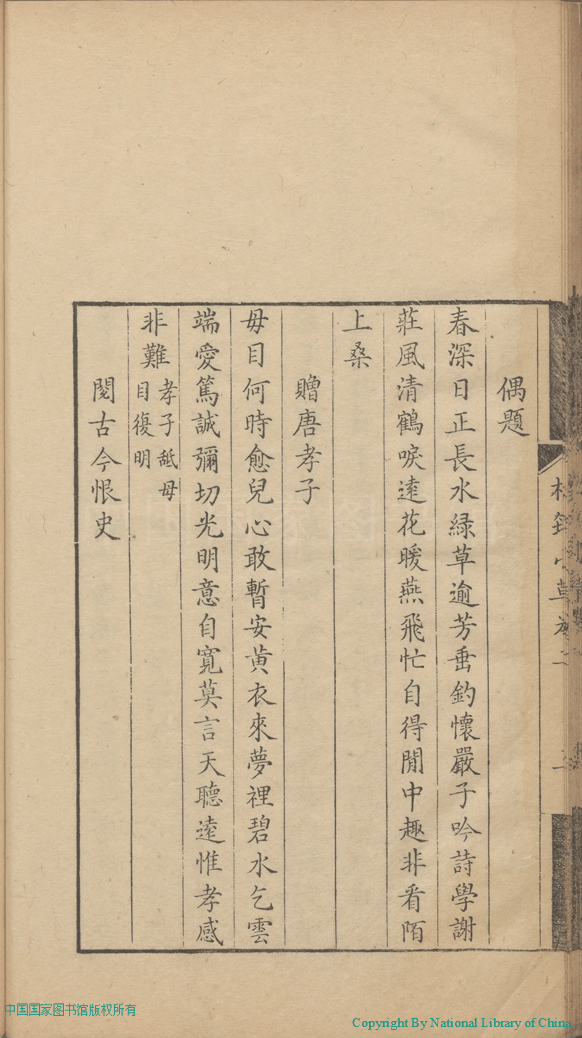 偶題
春深日正長水緑草逾芳垂釣懷嚴子吟詩學謝
莊風清鶴唳逺花暖燕飛忙自得閒中趣非看陌
上桑
贈唐孝子
毋目何時愈兒心敢暫安黄衣來夢裡碧水乞雲
端愛篤誠彌切光明意自寬莫言天聽逺惟孝感
非難孝子䑛母
目復明
閱古今恨史
中国国家图书馆版权所有
Copyright By National Library of China